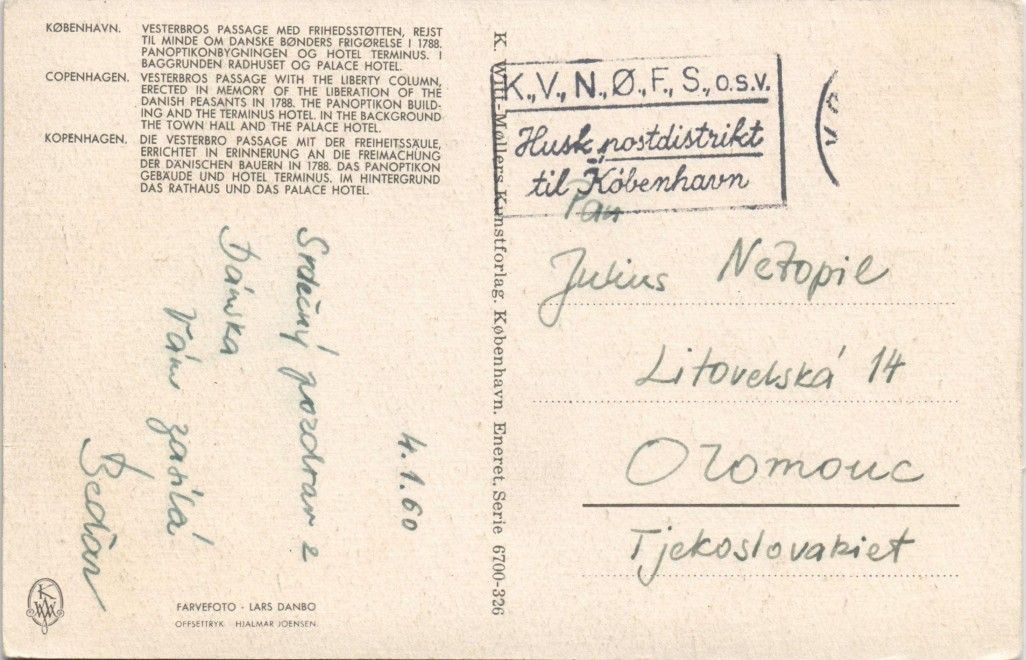 KØBENHAVN. VESTERBROS PASSAGE MED FRIHEDSSTØTTEN, REJST
TIL MINDE OM DANSKE BØNDERS FRIGØRELSE I 1788.
PANOPTIKONBYGNINGEN OG HOTEL TERMINUS. I
BAGGRUNDEN RADHUSET OG PALACE HOTEL.
COPENHAGEN. VESTERBROS PASSAGE WITH THE LIBERTY COLUMN,
ERECTED IN MEMORY OF THE LIBERATION OF THE
DANISH PEASANTS IN 1788. THE PANOPTIKON BUILD-
ING AND THE TERMINUS HOTEL. IN THE BACKGROUND
THE TOWN HALL AND THE PALACE HOTEL.
KOPENHAGEN. DIE VESTERBRO PASSAGE MIT DER FREIHEITSSÄULE,
ERRICHTET IN ERINNERUNG AN DIE FREIMACHUNG
DER DÄNISCHEN BAUERN IN 1788. DAS PANOPTIKON
GEBÄUDE UND HOTEL TERMINUS. IM HINTERGRUND
DAS RATHAUS UND DAS PALACE HOTEL.
4.1.60
Srdečný pozdrav z
Dánska
Vám zasílá
K. Witt-Møllers Kunstforlag. København. Eneret. Serie 6700-326
K., V., N., Ø., F., S., o.s.v.
Husk postdistrikt
til København
Pan
Julius Nezopil
Litovelská 14
Olomouc
Tjekoslovakiet
FARVEFOTO - LARS DANBO
OFFSETTRYK HJALMAR JOENSEN
K
W M